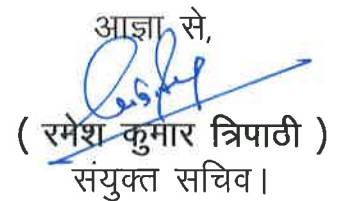 आज्ञा से,
( रमेश कुमार त्रिपाठी )
संयुक्त सचिव।